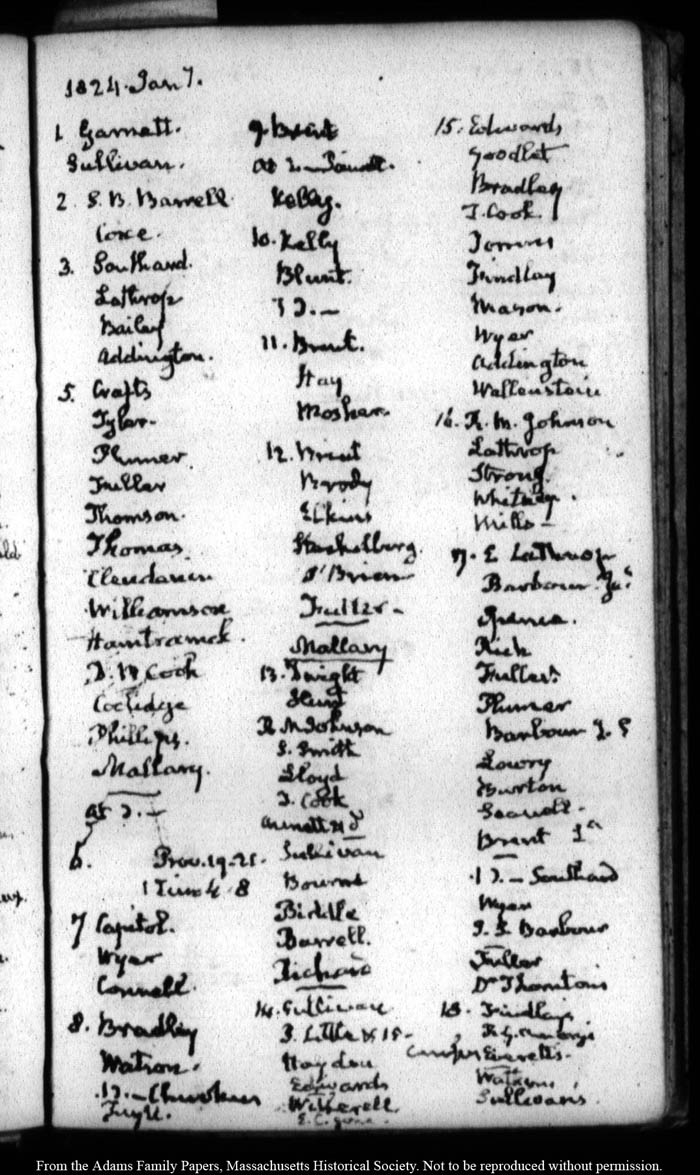 1824. Jan 7.
1 Garnett.
Sullivan.
2. S. B. Barrell
Coxe.
3. Southard.
Lathrop
Bailey
Addington.
5. Crafts
Tyler.
Plumer
Fuller
Thomson.
Thomas
Clendanin
Williamson
Hamtramck.
D. W. Cook
Coolidge
Phillips.
Mallary.
at
6. Prov. 19-21.
1 Tim 4. 8
7 Capitol.
Wyer
Connell.
8. Bradley
Watson.
17.—Cherokees
9. Brent
at
Kelly.
10. Kelly
Blunt.
11. Brent.
Hay
Mosher
12. Brent
Brody
Elkins
Stackelberg.
O'Brien
Fuller—
Mallary
13. Dwight
Hunt
R. M Johnson
S. Smith
Lloyd
J. Cook
Sullivan
Bourne
Biddle
Barrell.
Richard
14. Sullivan
P. Little & 15—
Hayden
Edwards
Witherell
15. Edwards
Goodlet
Bradley
J. Cook
Jones
Findlay
Mason.
Wyer
Addington
Wallenstein
16. R. M. Johnson
Lathrop
Strong
Whitney.
Mills—
17. E Lathrop
Barbour. Jas.
Rich
Fuller.
Plumer
Barbour J. S
Lowry
Burton
Brent
17.—Southard
Wyer
J. S Barbour
Fuller
Dr Thornton's
18. Findlay
Everetts.
Watkins
Sullivans.
From the Adams Family Papers, Massachusetts Historical Society. Not to be reproduced without permission.